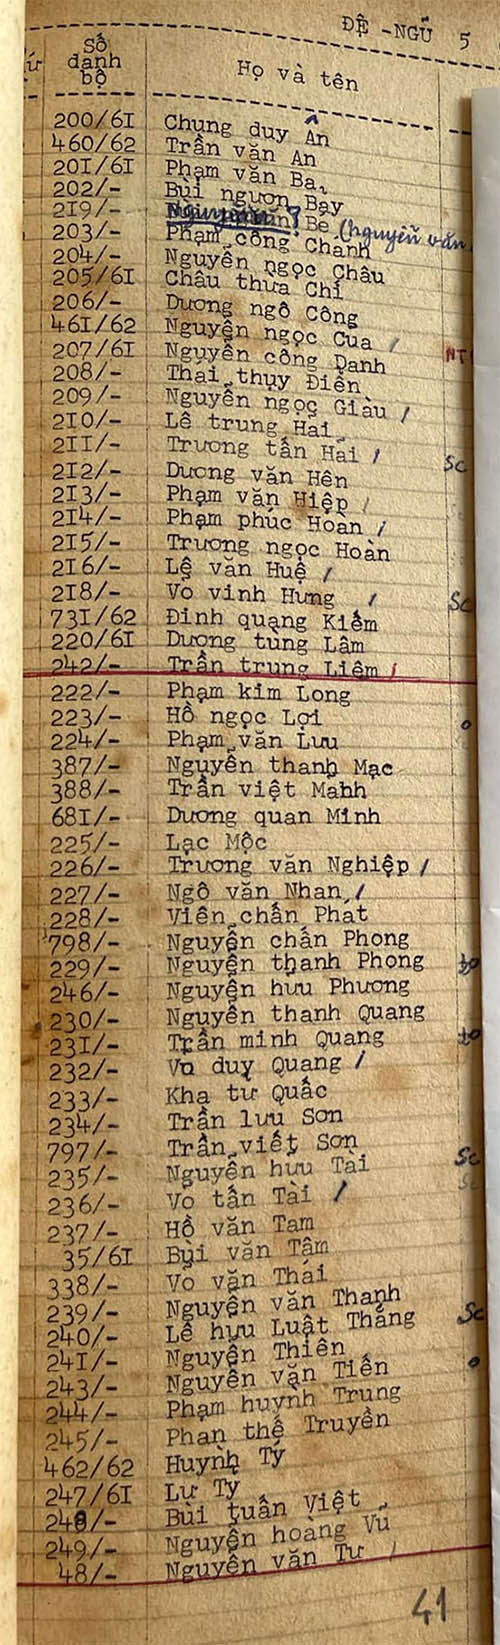 ĐỆ -NGŨ 5
Số danh bộ Họ và tên
200/6I Chung duy Ân
460/62 Trần văn An
20I/6I Phạm văn Ba
202/- Bùi ngươn Bay
2I9/- Be (nguyễn văn
203/- Phạm công Chanh
204/- Nguyễn ngọc Châu
205/6I Châu thưa Chí
206/- Dương ngô Công
46I/62 Nguyễn ngọc Cua /
207/6I Nguyễn công Danh
208/- Thai thụy Điền
209/- Nguyễn ngọc Giàu /
2I0/- Lê trung Hai
2II/- Trương tấn Hai / Sc
2I2/- Dương văn Hên
2I3/- Phạm văn Hiệp /
2I4/- Phạm phúc Hoàn /
2I5/- Trương ngọc Hoàn
2I6/- Lê văn Huệ /
2I8/- Vo vinh Hưng / Sc
73I/62 Đinh quang Kiếm
220/6I Dương tùng Lâm
242/- Trần trung Liêm /
222/- Phạm kim Long
223/- Hồ ngọc Lợi
224/- Phạm văn Lưu
387/- Nguyễn thanh Mạc
388/- Trần việt Manh
68I/- Dương quan Minh
225/- Lạc Mộc
226/- Trương văn Nghiệp /
227/- Ngô văn Nhan /
228/- Viên chấn Phát
798/- Nguyễn chấn Phong
229/- Nguyễn thanh Phong
246/- Nguyễn hưu Phương
230/- Nguyễn thanh Quang
23I/- Trần minh Quang
232/- Vu duy Quang /
233/- Kha tư Quắc
234/- Trần lưu Sơn
797/- Trần viết Sơn
235/- Nguyễn hưu Tài Sc
236/- Vo tấn Tài /
237/- Hồ văn Tam
35/6I Bùi văn Tâm
338/- Vo văn Thái
239/- Nguyễn văn Thanh
240/- Lê hưu Luật Thắng Sc
24I/- Nguyễn Thiên
243/- Nguyễn văn Tiến
244/- Phạm huỳnh Trung
245/- Phan thế Truyền
462/62 Huỳnh Tý
247/6I Lư Ty
248/- Bùi tuấn Việt
249/- Nguyễn hoàng Vũ
48/- Nguyễn văn Tư /
41